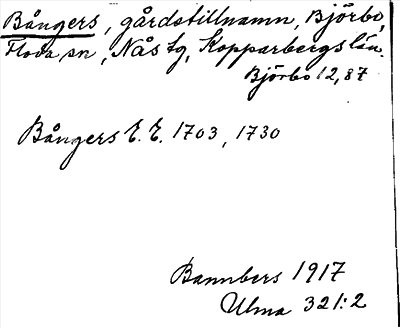 Bångers, gårdstillnamn, Björbo,
Floda sn, Nås tg, Kopparbergs län.
Björbo 12, 87
Bångers E. E. 1703, 1730
Bannbers 1917
Ulma 321:2